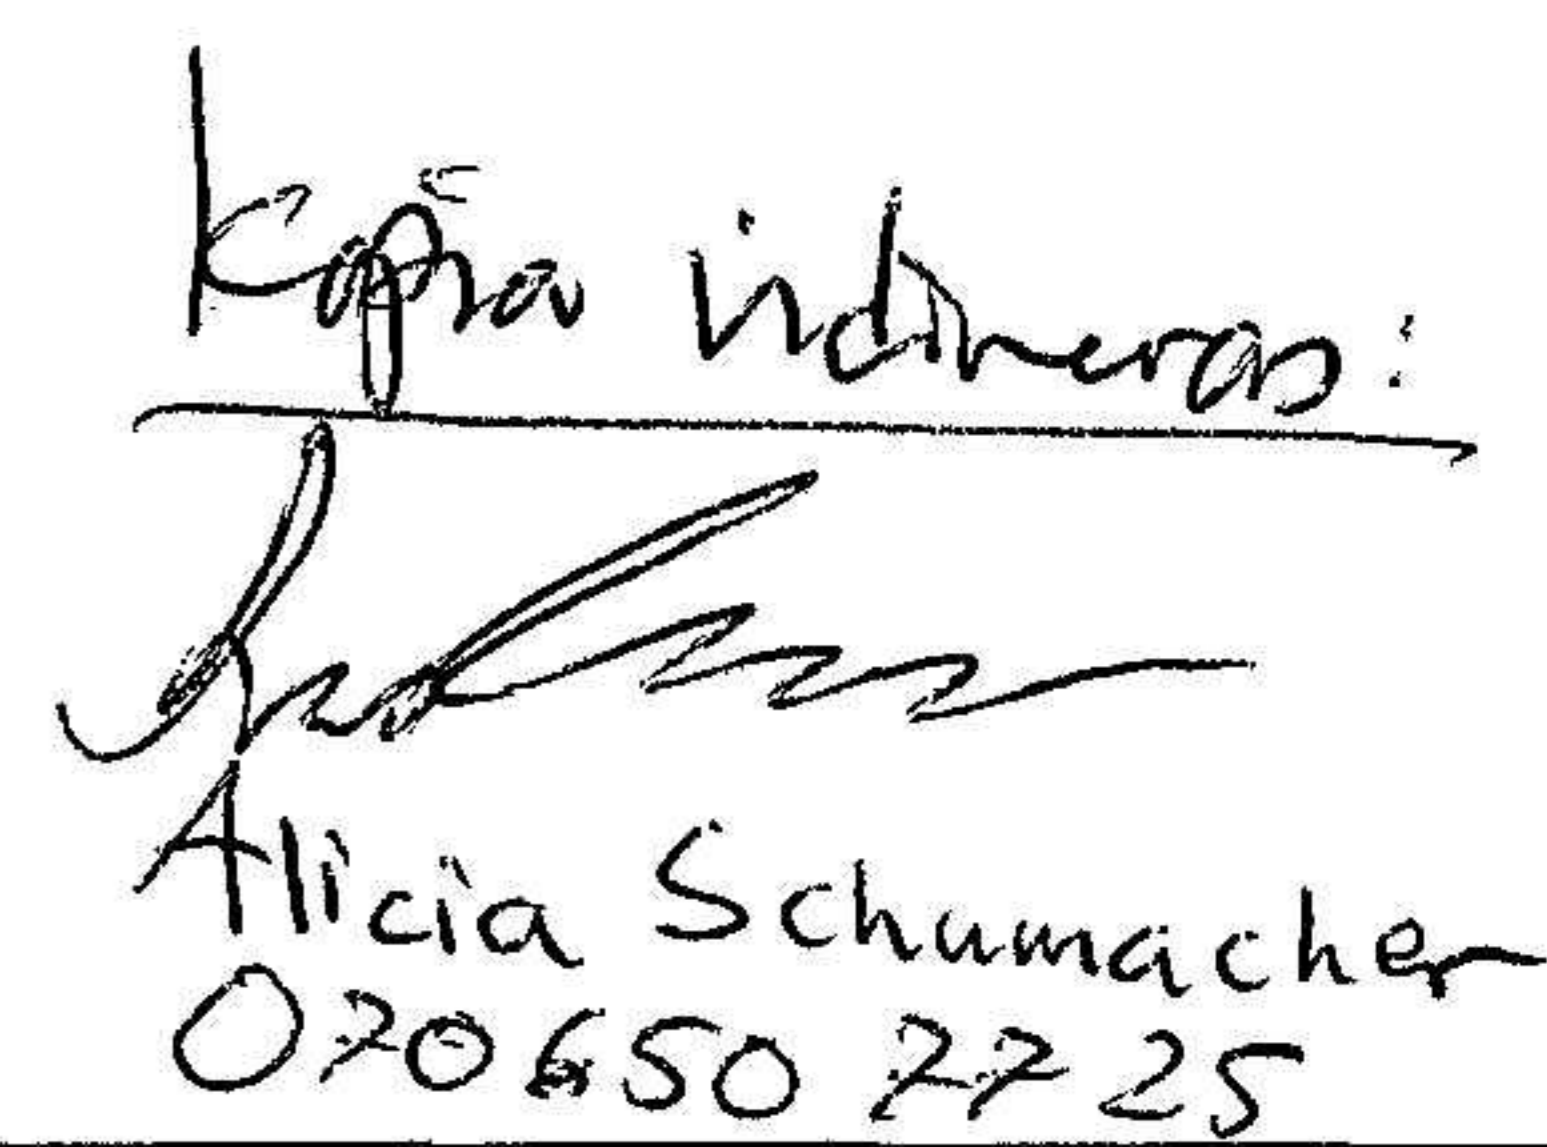 Kopia vidimeras:
Alicia Schumacher
070 650 77 25